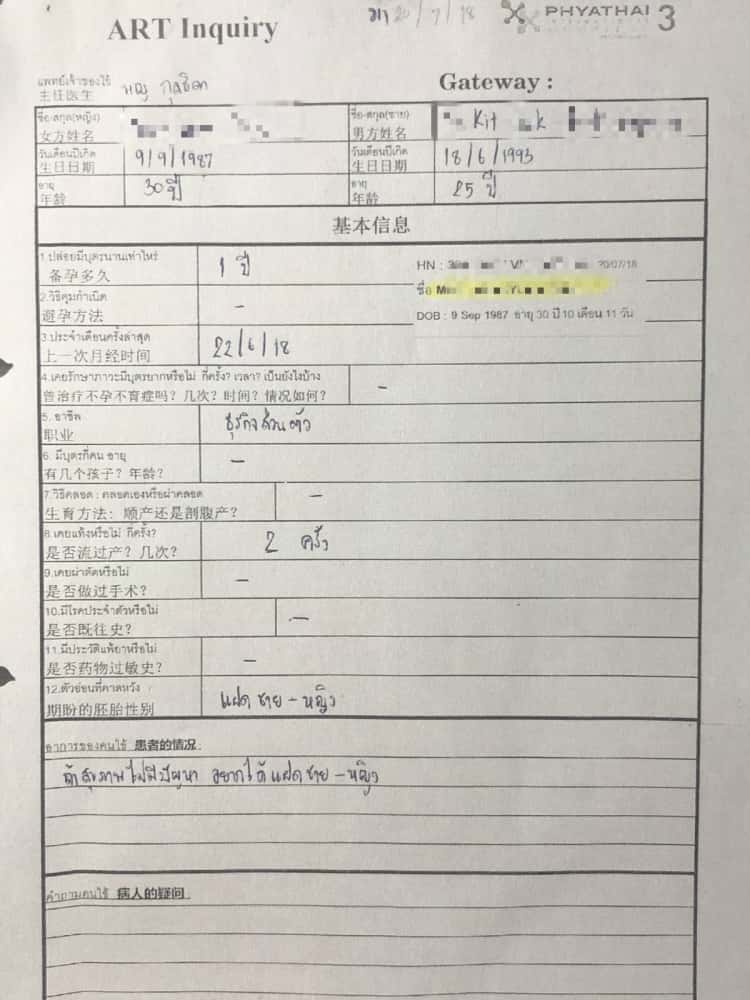 ART Inquiry
20/7/18
PHYATHAI 3
แพทย์เจ้าของไข้
主任医生
Gateway :
ชื่อ-สกุล(หญิง)
女方姓名
ชื่อ-สกุล(ชาย)
男方姓名
Kit
วันเดือนปีเกิด
生日日期
9/9/1987
วันเดือนปีเกิด
生日日期
18/6/1993
อายุ
年龄
30 ปี
อายุ
年龄
25 ปี
基本信息
1.ปล่อยมีบุตรนานเท่าไหร่
备孕多久
1 ปี
HN :
20/07/18
ชื่อ
DOB : 9 Sep 1987 อายุ 30 ปี 10 เดือน 11 วัน
2.วิธีคุมกำเนิด
避孕方法
-
3.ประจำเดือนครั้งล่าสุด
上一次月经时间
22/6/18
4.เคยรักษาภาวะมีบุตรยากหรือไม่ กี่ครั้ง? เวลา? เป็นยังไงบ้าง
曾治疗不孕不育症吗？几次？时间？情况如何？
-
5. อาชีพ
职业
ธุรกิจส่วนตัว
6. มีบุตรกี่คน อายุ
有几个孩子？年龄？
-
7.วิธีคลอด : คลอดเองหรือผ่าคลอด
生育方法：顺产还是剖腹产？
-
8.เคยแท้งหรือไม่ กี่ครั้ง?
是否流过产？几次？
2 ครั้ง
9.เคยผ่าตัดหรือไม่
是否做过手术？
-
10.มีโรคประจำตัวหรือไม่
是否既往史？
-
11.มีประวัติแพ้ยาหรือไม่
是否药物过敏史？
-
12.ตัวอ่อนที่คาดหวัง
期盼的胚胎性别
แฝด ชาย - หญิง
อาการของคนไข้ 患者的情况:
ถ้าสุขภาพไม่มีปัญหา อยากได้แฝด ชาย - หญิง
คำถามคนไข้ 病人的疑问